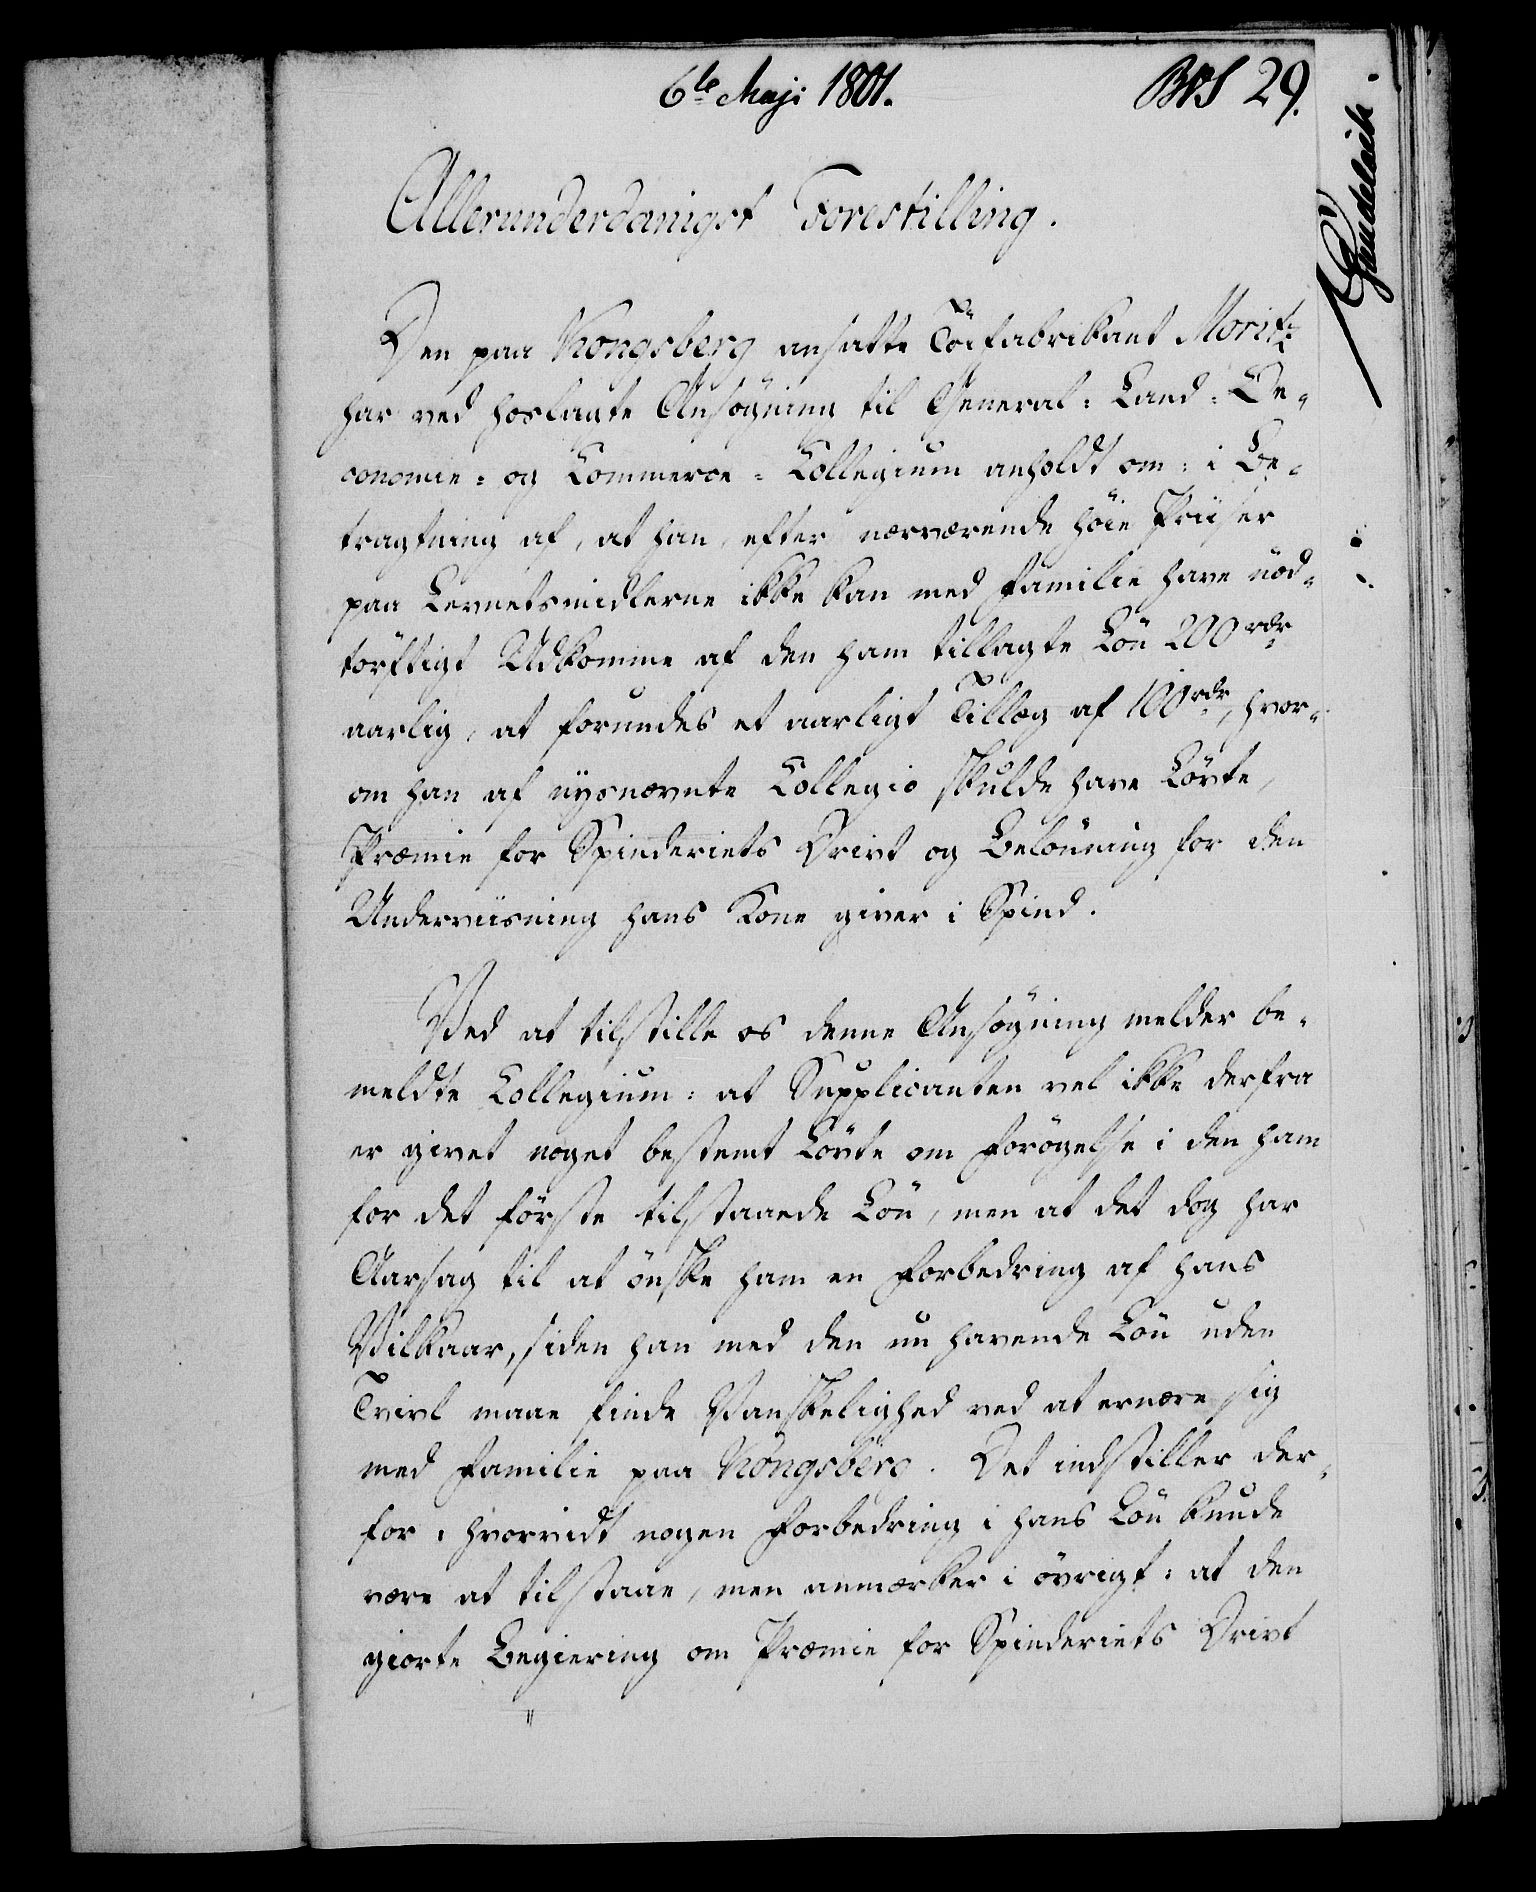 6te Maji 1801.
29.
Allerunderdanigst Forestilling.
Den paa Kongsberg ansatte Töifabrikant Moritz
har ved hoslagte Ansøgning til General- Land- Oe-
conomie- og Commerce-Collegium anholdt om: i Be-
tragtning af, at han, efter nærværende höie Priiser
paa Levnetsmidlerne ikke kan med Familie have nöd-
törftigt Udkomme af den ham tillagte Lön 200 rdr
aarlig, at forundes et aarligt Tillæg af 100 rdr, hvor-
om han af nysnævnte Collegio skulde have Lövte,
Præmie for Spinderiets Drivt og Belönning for den
Underviisning hans Kone giver i Spind.
Ved at tilstille os denne Ansögning melder be-
meldte Collegium: at Supplicanten vel ikke derfra
er givet noget bestemt Lövte om Forögelse i den ham
for det förste tilstaaede Lön, men at det dog har
Aarsag til at önske ham en Forbedring af hans
Vilkaar, siden han med den nu havende Lön uden
Tvivl maae finde Vanskelighed ved at ernære sig
med Familie paa Kongsberg. Det indstiller der-
for, hvorvidt nogen Forbedring i hans Lön kunde
være at tilstaae, men anmærker i övrigt: at den
giorte Begiering om Præmie for Spinderiets Drivt